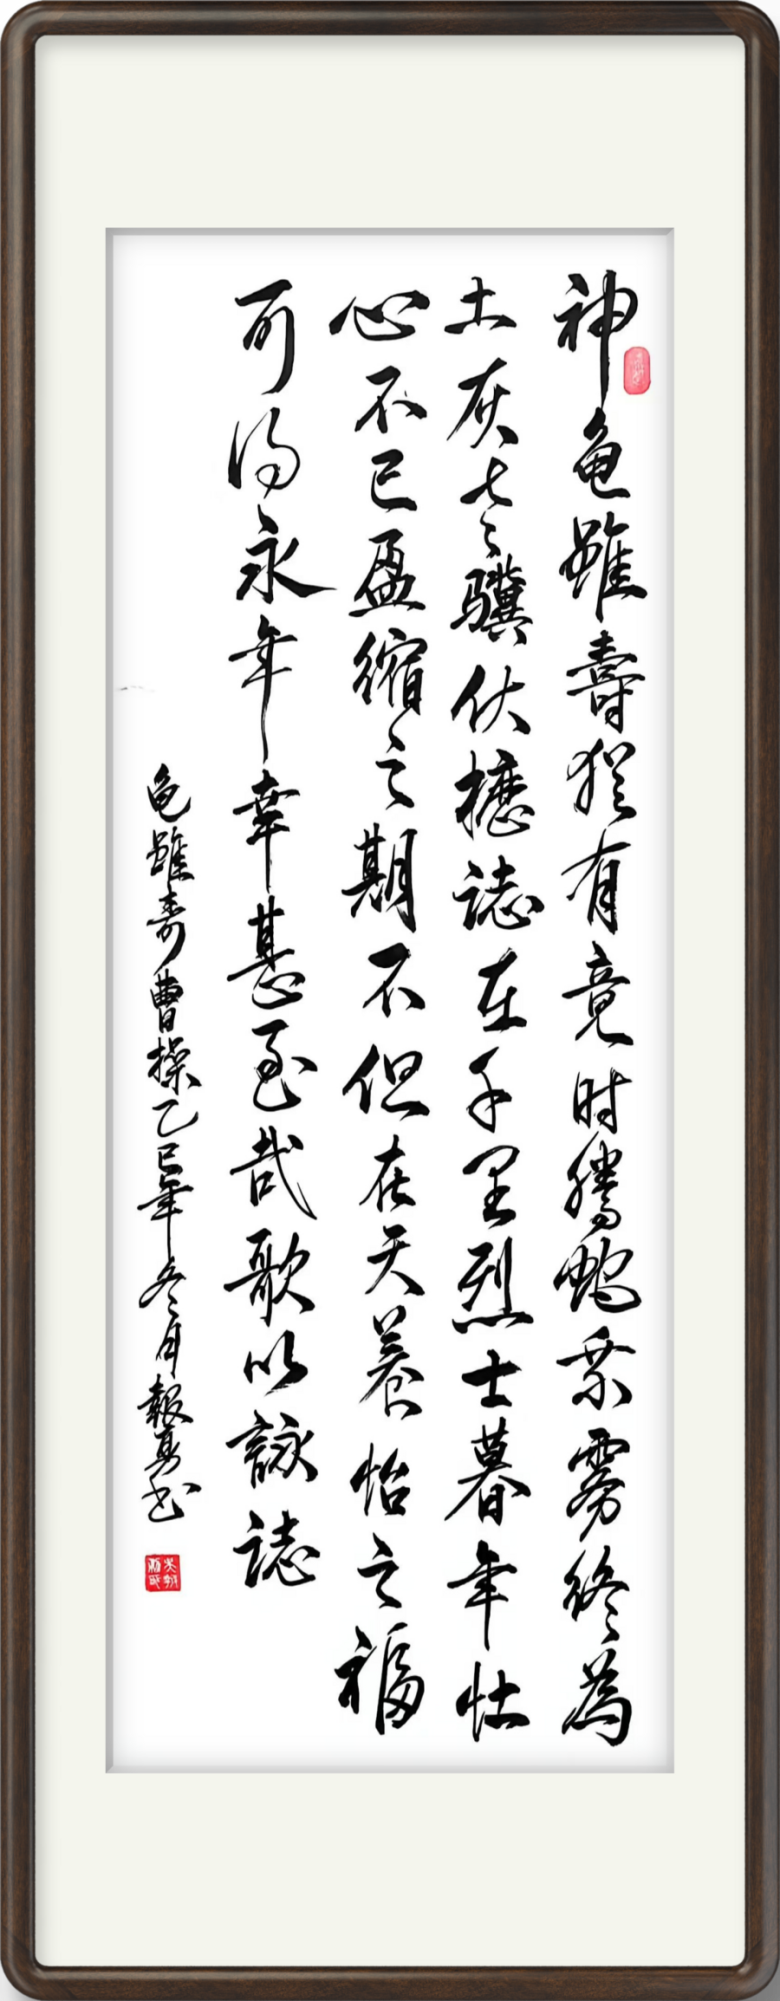 神龟雖壽猶有竟时騰蛇乘雾终為
土灰老骥伏櫪誌在千里烈士暮年壮
心不已盈缩之期不但在天養怡之福
可得永年幸甚至哉歌以詠誌
龟雖壽曹操乙巳年冬月報勇书